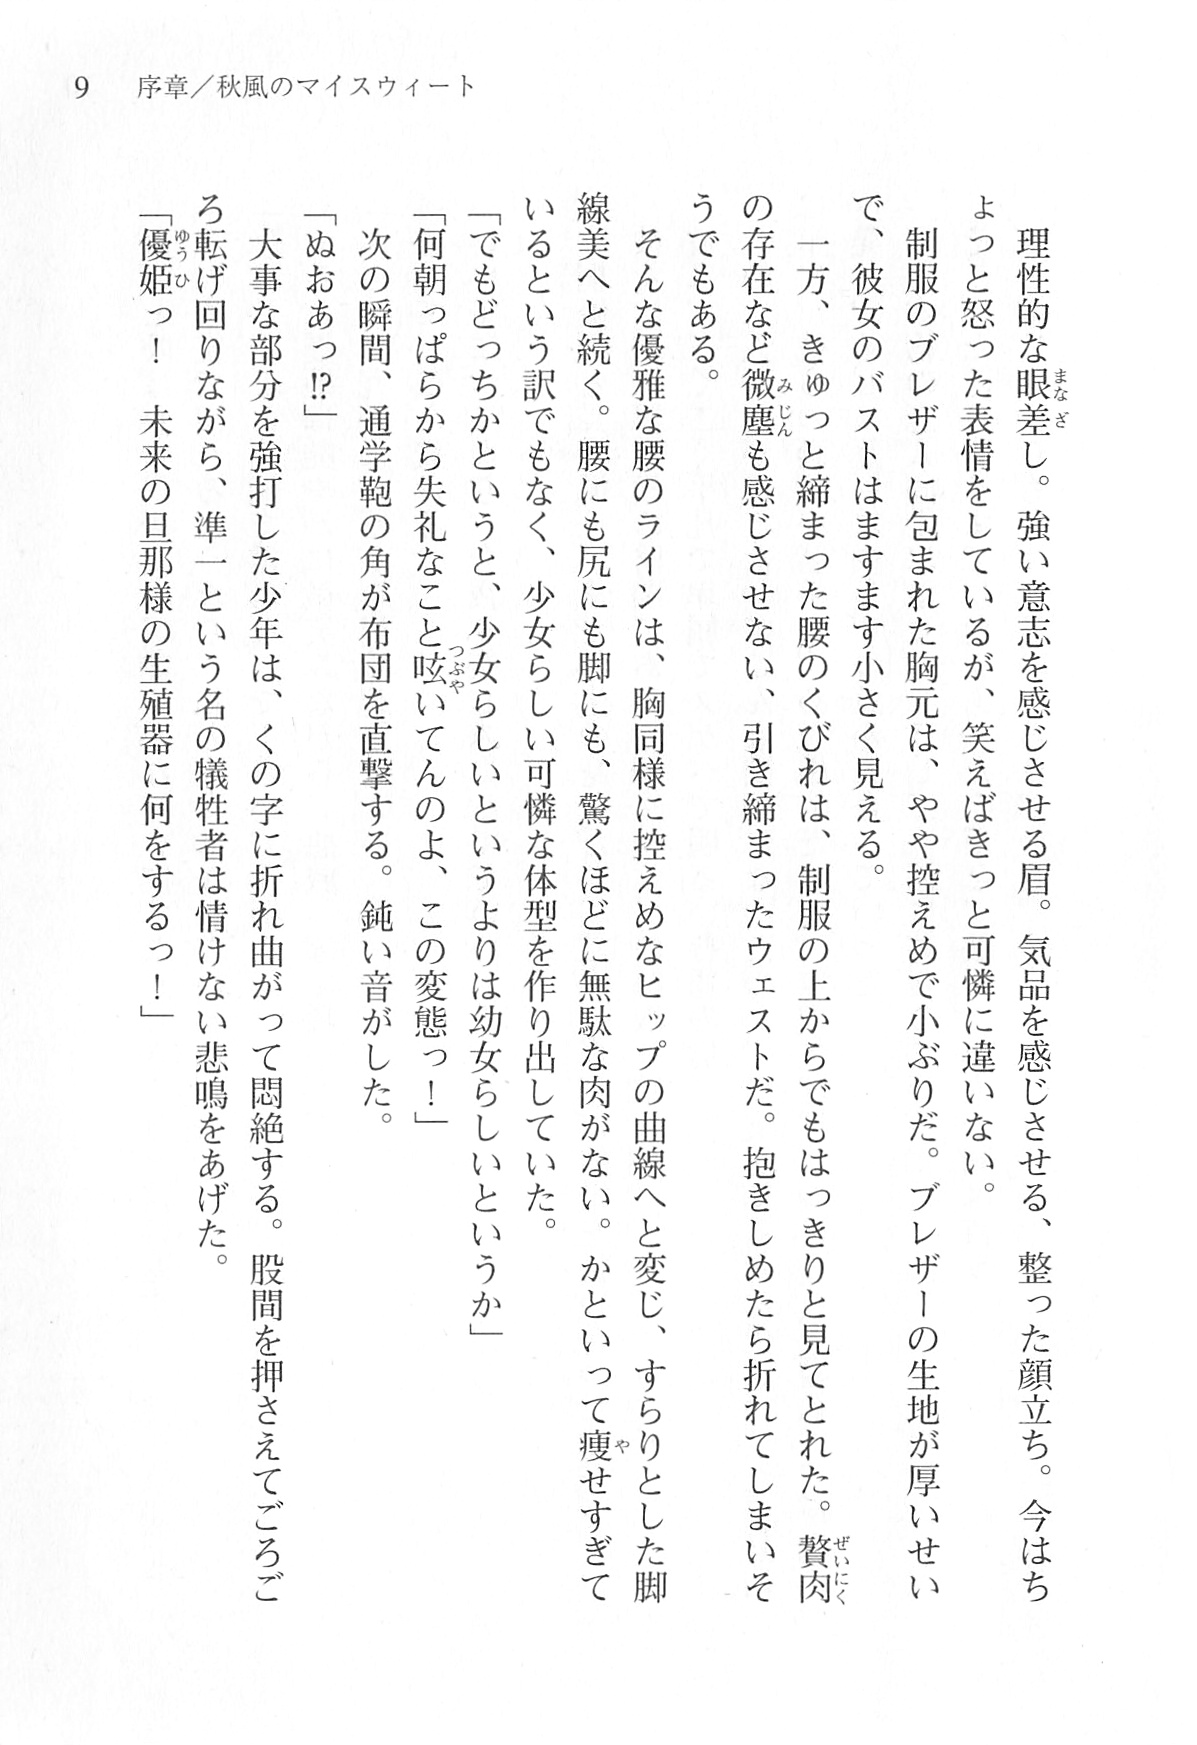 9 序章／秋風のマイスウィート
理性的な眼差し。強い意志を感じさせる眉。気品を感じさせる、整った顔立ち。今はち
まなざ
ょっと怒った表情をしているが、笑えばきっと可憐に違いない。
制服のブレザーに包まれた胸元は、やや控えめで小ぶりだ。ブレザーの生地が厚いせい
で、彼女のバストはますます小さく見える。
一方、きゅっと締まった腰のくびれは、制服の上からでもはっきりと見てとれた。贅肉
ぜいにく
の存在など微塵も感じさせない、引き締まったウェストだ。抱きしめたら折れてしまいそ
みじん
うでもある。
そんな優雅な腰のラインは、胸同様に控えめなヒップの曲線へと変じ、すらりとした脚
線美へと続く。腰にも尻にも脚にも、驚くほどに無駄な肉がない。かといって痩せすぎて
や
いるという訳でもなく、少女らしい可憐な体型を作り出していた。
「でもどっちかというと、少女らしいというよりは幼女らしいというか」
「何朝っぱらから失礼なこと呟いてんのよ、この変態っ！」
つぶや
次の瞬間、通学鞄の角が布団を直撃する。鈍い音がした。
「ぬおあっ!?」
大事な部分を強打した少年は、くの字に折れ曲がって悶絶する。股間を押さえてごろご
ろ転げ回りながら、準一という名の犠牲者は情けない悲鳴をあげた。
「優姫っ！　未来の旦那様の生殖器に何をするっ！」
ゆうひ